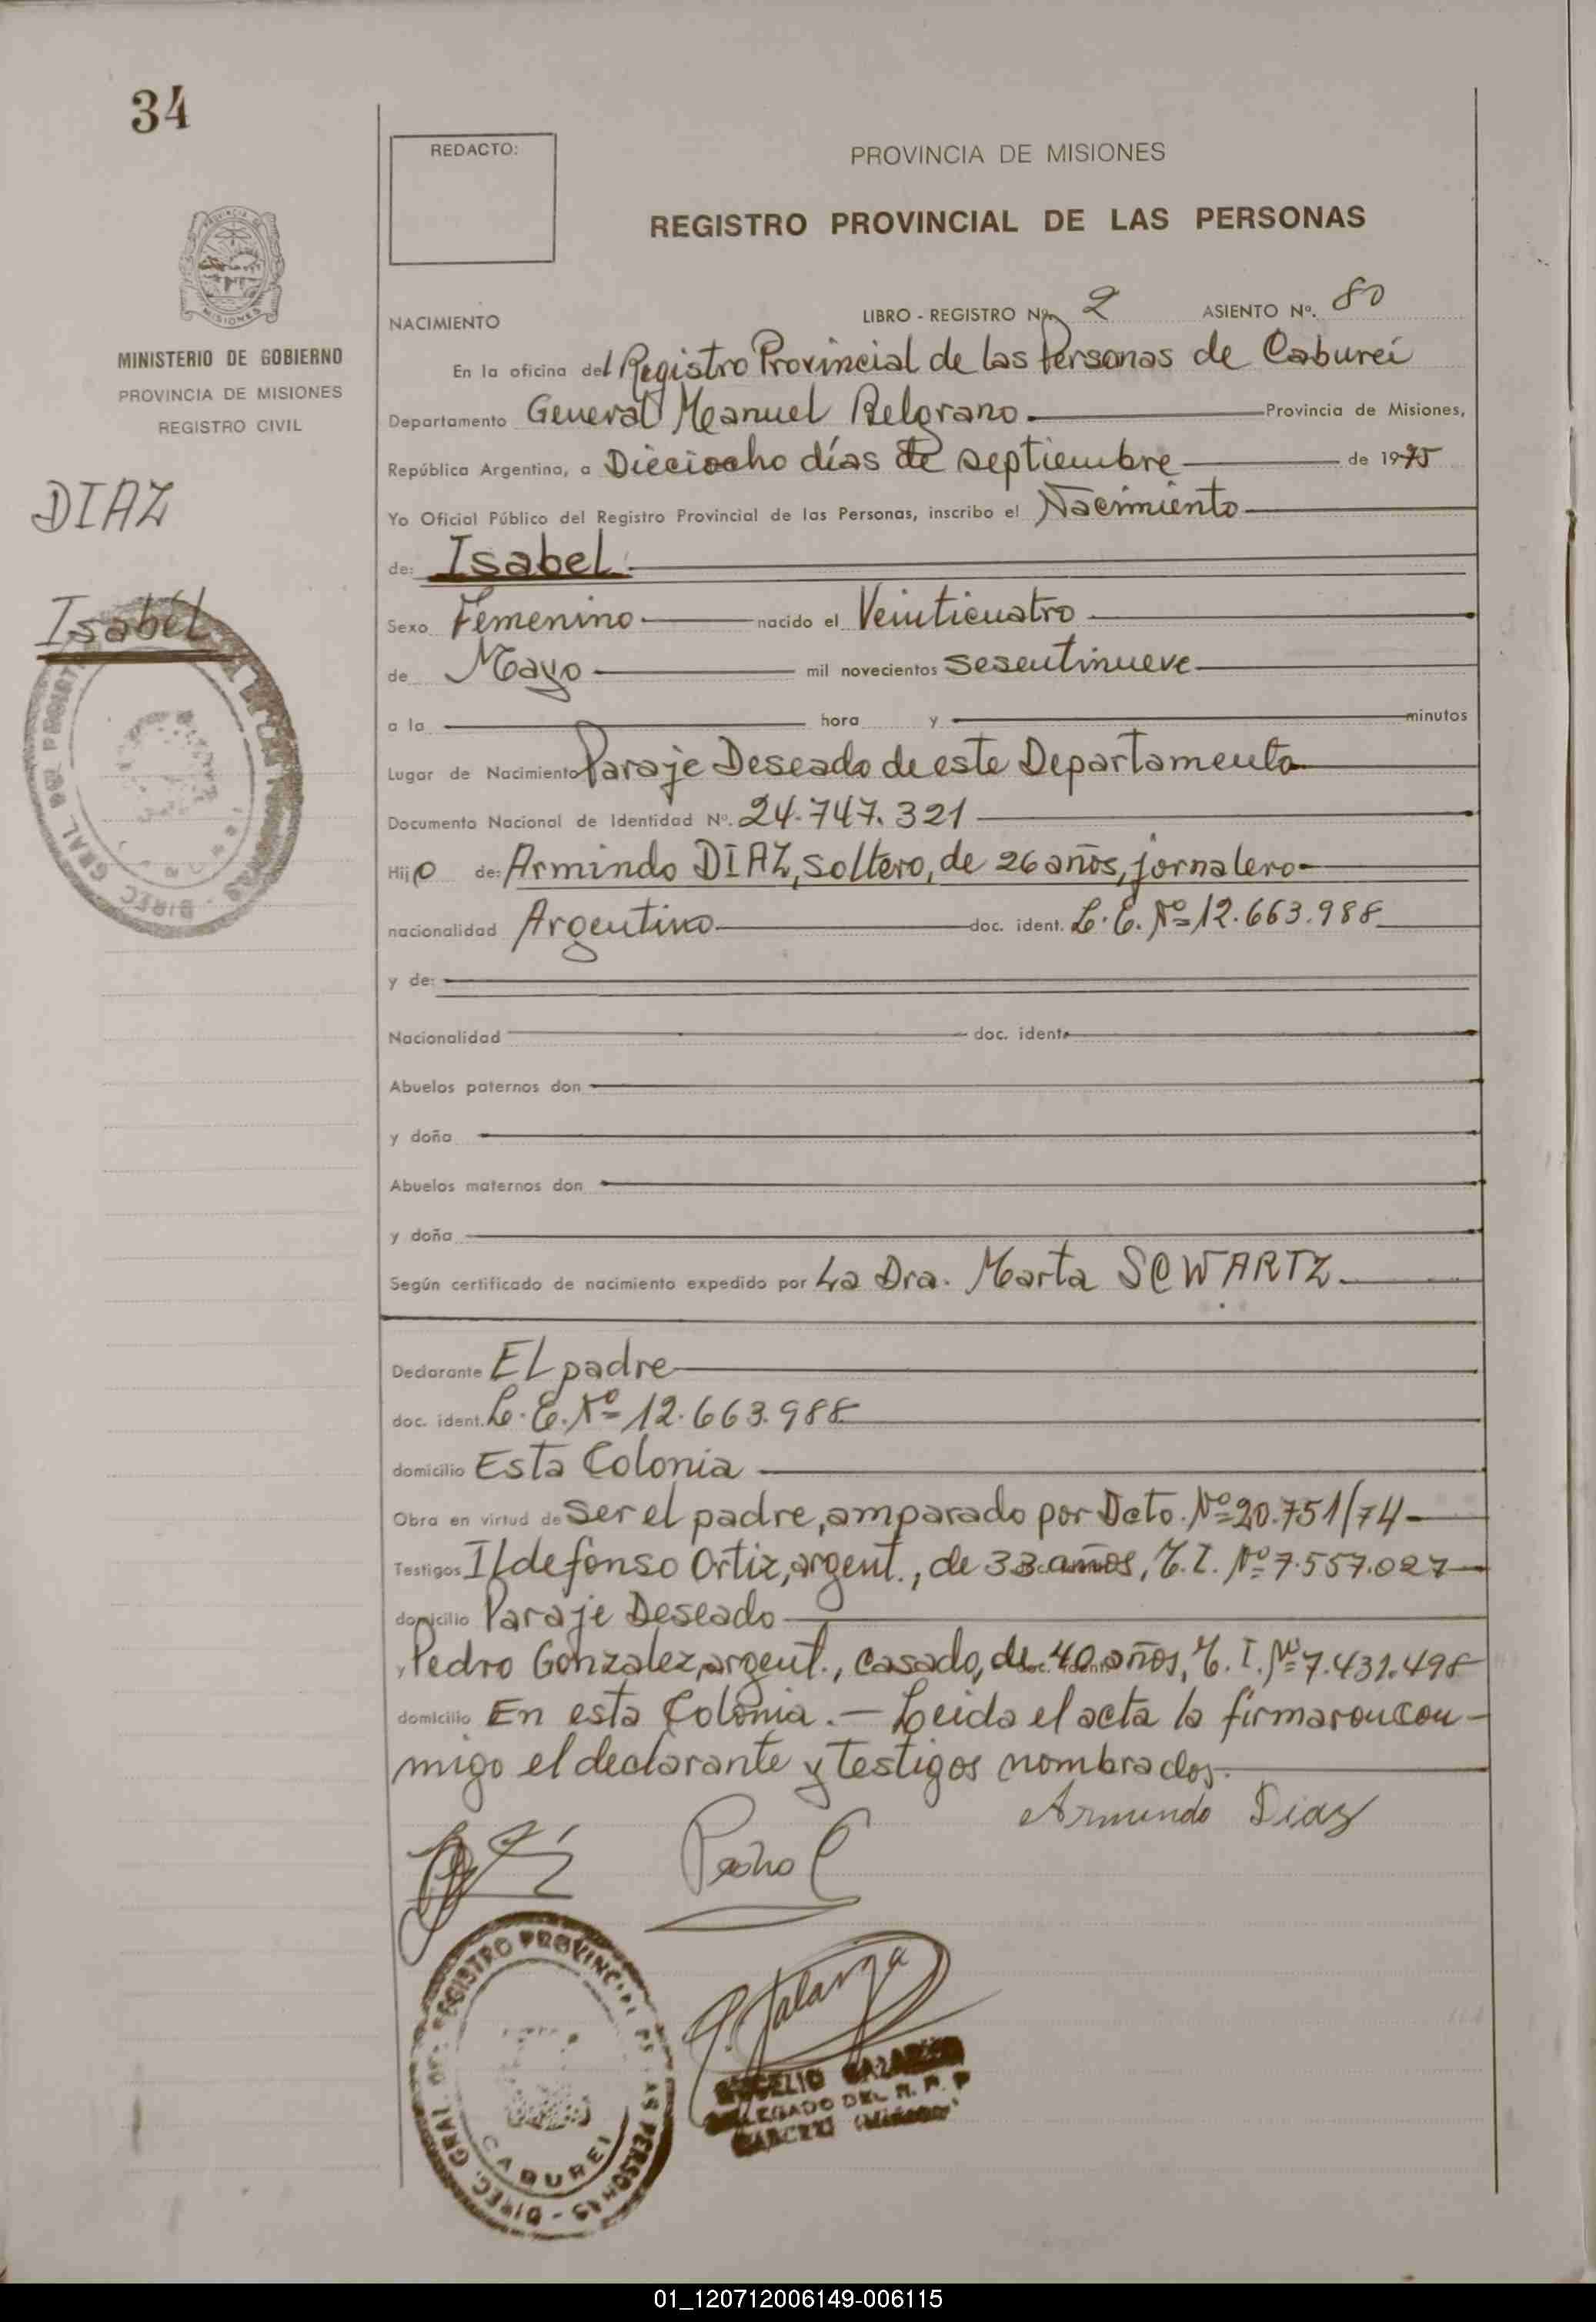 34
REDACTO:
PROVINCIA DE MISIONES
REGISTRO PROVINCIAL DE LAS PERSONAS
MISIONES
MINISTERIO DE GOBIERNO
PROVINCIA DE MISIONES
REGISTRO CIVIL
DIAZ
Isabel
NACIMIENTO LIBRO - REGISTRO Nº. 2 ASIENTO Nº. 80
En la oficina del Registro Provincial de las Personas de Cabureí
Departamento General Manuel Belgrano Provincia de Misiones,
República Argentina, a Dieciocho días de septiembre de 1975
Yo Oficial Público del Registro Provincial de las Personas, inscribo el Nacimiento
de: Isabel
Sexo Femenino nacido el Veinticuatro
de Mayo mil novecientos sesentinueve
a la hora y minutos
Lugar de Nacimiento Paraje Deseado de este Departamento
Documento Nacional de Identidad Nº. 24.747.321
Hijo de: Armindo DIAZ, soltero, de 26 años, jornalero
nacionalidad Argentino doc. ident. L.E. Nº 12.663.988
y de:
Nacionalidad doc. ident.
Abuelos paternos don
y doña
Abuelos maternos don
y doña
Según certificado de nacimiento expedido por La Dra. Marta SCWARTZ.
Declarante EL padre
doc. ident. L.E. Nº 12.663.988
domicilio Esta Colonia
Obra en virtud de ser el padre, amparado por Dcto. Nº 20.751/74
Testigos ILdefonso Ortiz, argent., de 33 años, M.I. Nº 7.557.027
domicilio Paraje Deseado
y Pedro Gonzalez, argent., casado, de 40 años, M.I. Nº 7.431.498
domicilio En esta Colonia.— Leida el acta la firmaron con-
migo el declarante y testigos nombrados.
Armindo Diaz
Pedro G
REGISTRO PROVINCIAL DE LAS PERSONAS - DIREC. GRAL DEL
CABUREI
DELEGADO DEL R. P. P